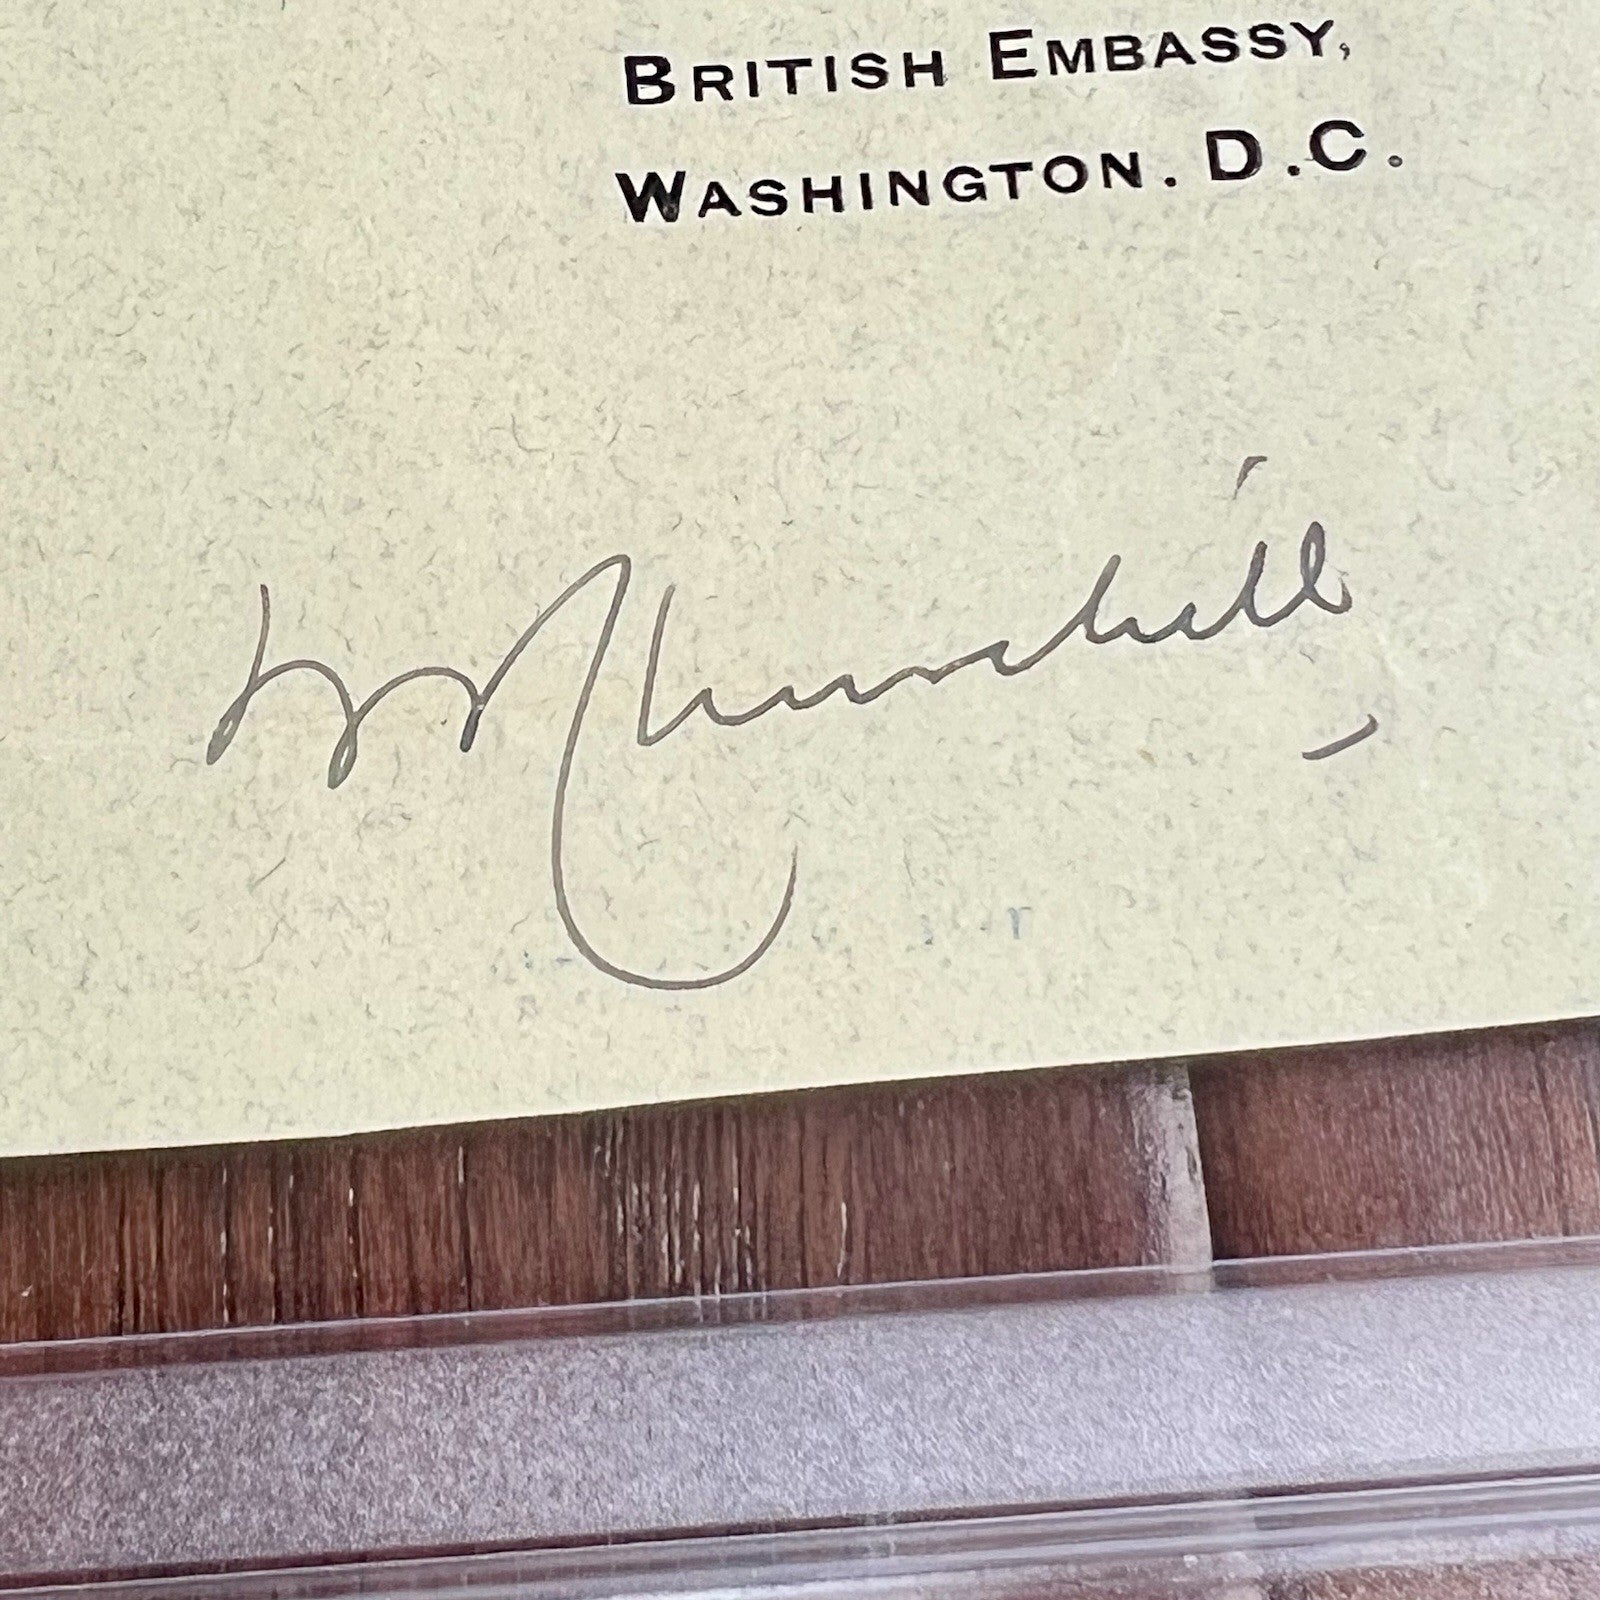 BRITISH EMBASSY,
WASHINGTON. D.C.
W Churchill